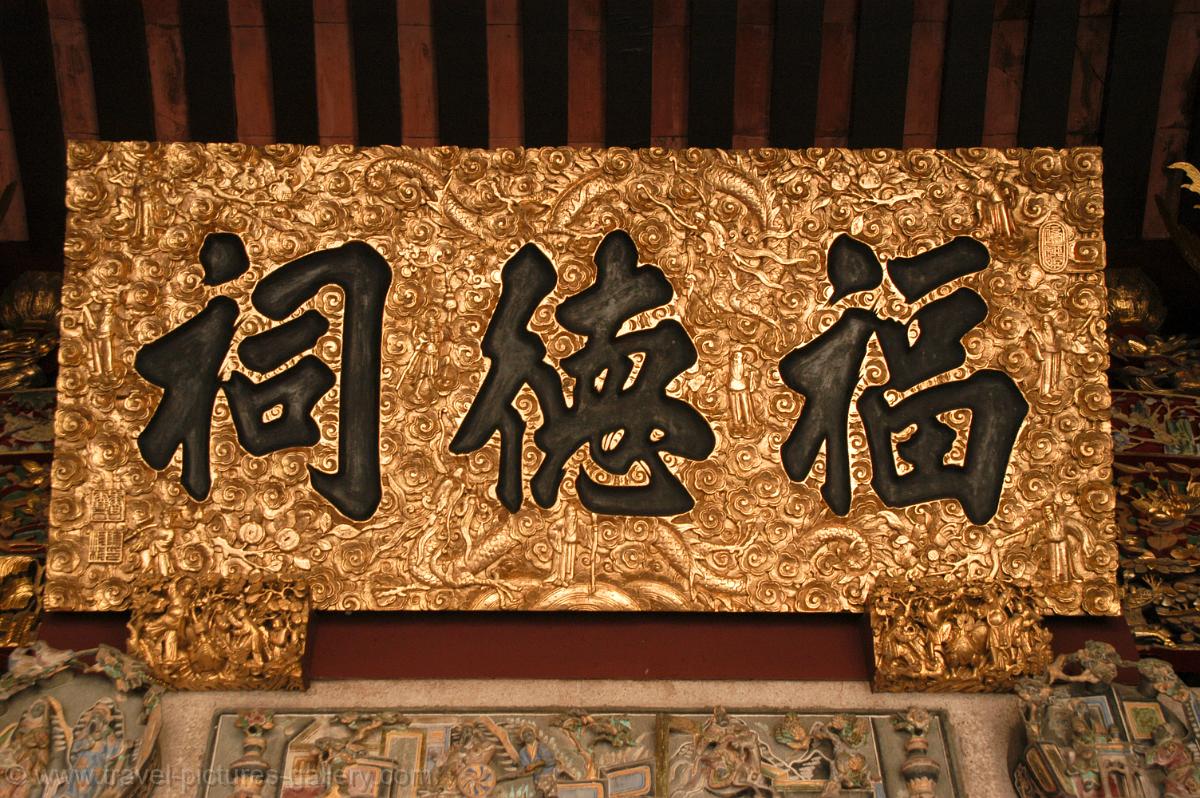 福德祠
© www.travel-pictures-gallery.com